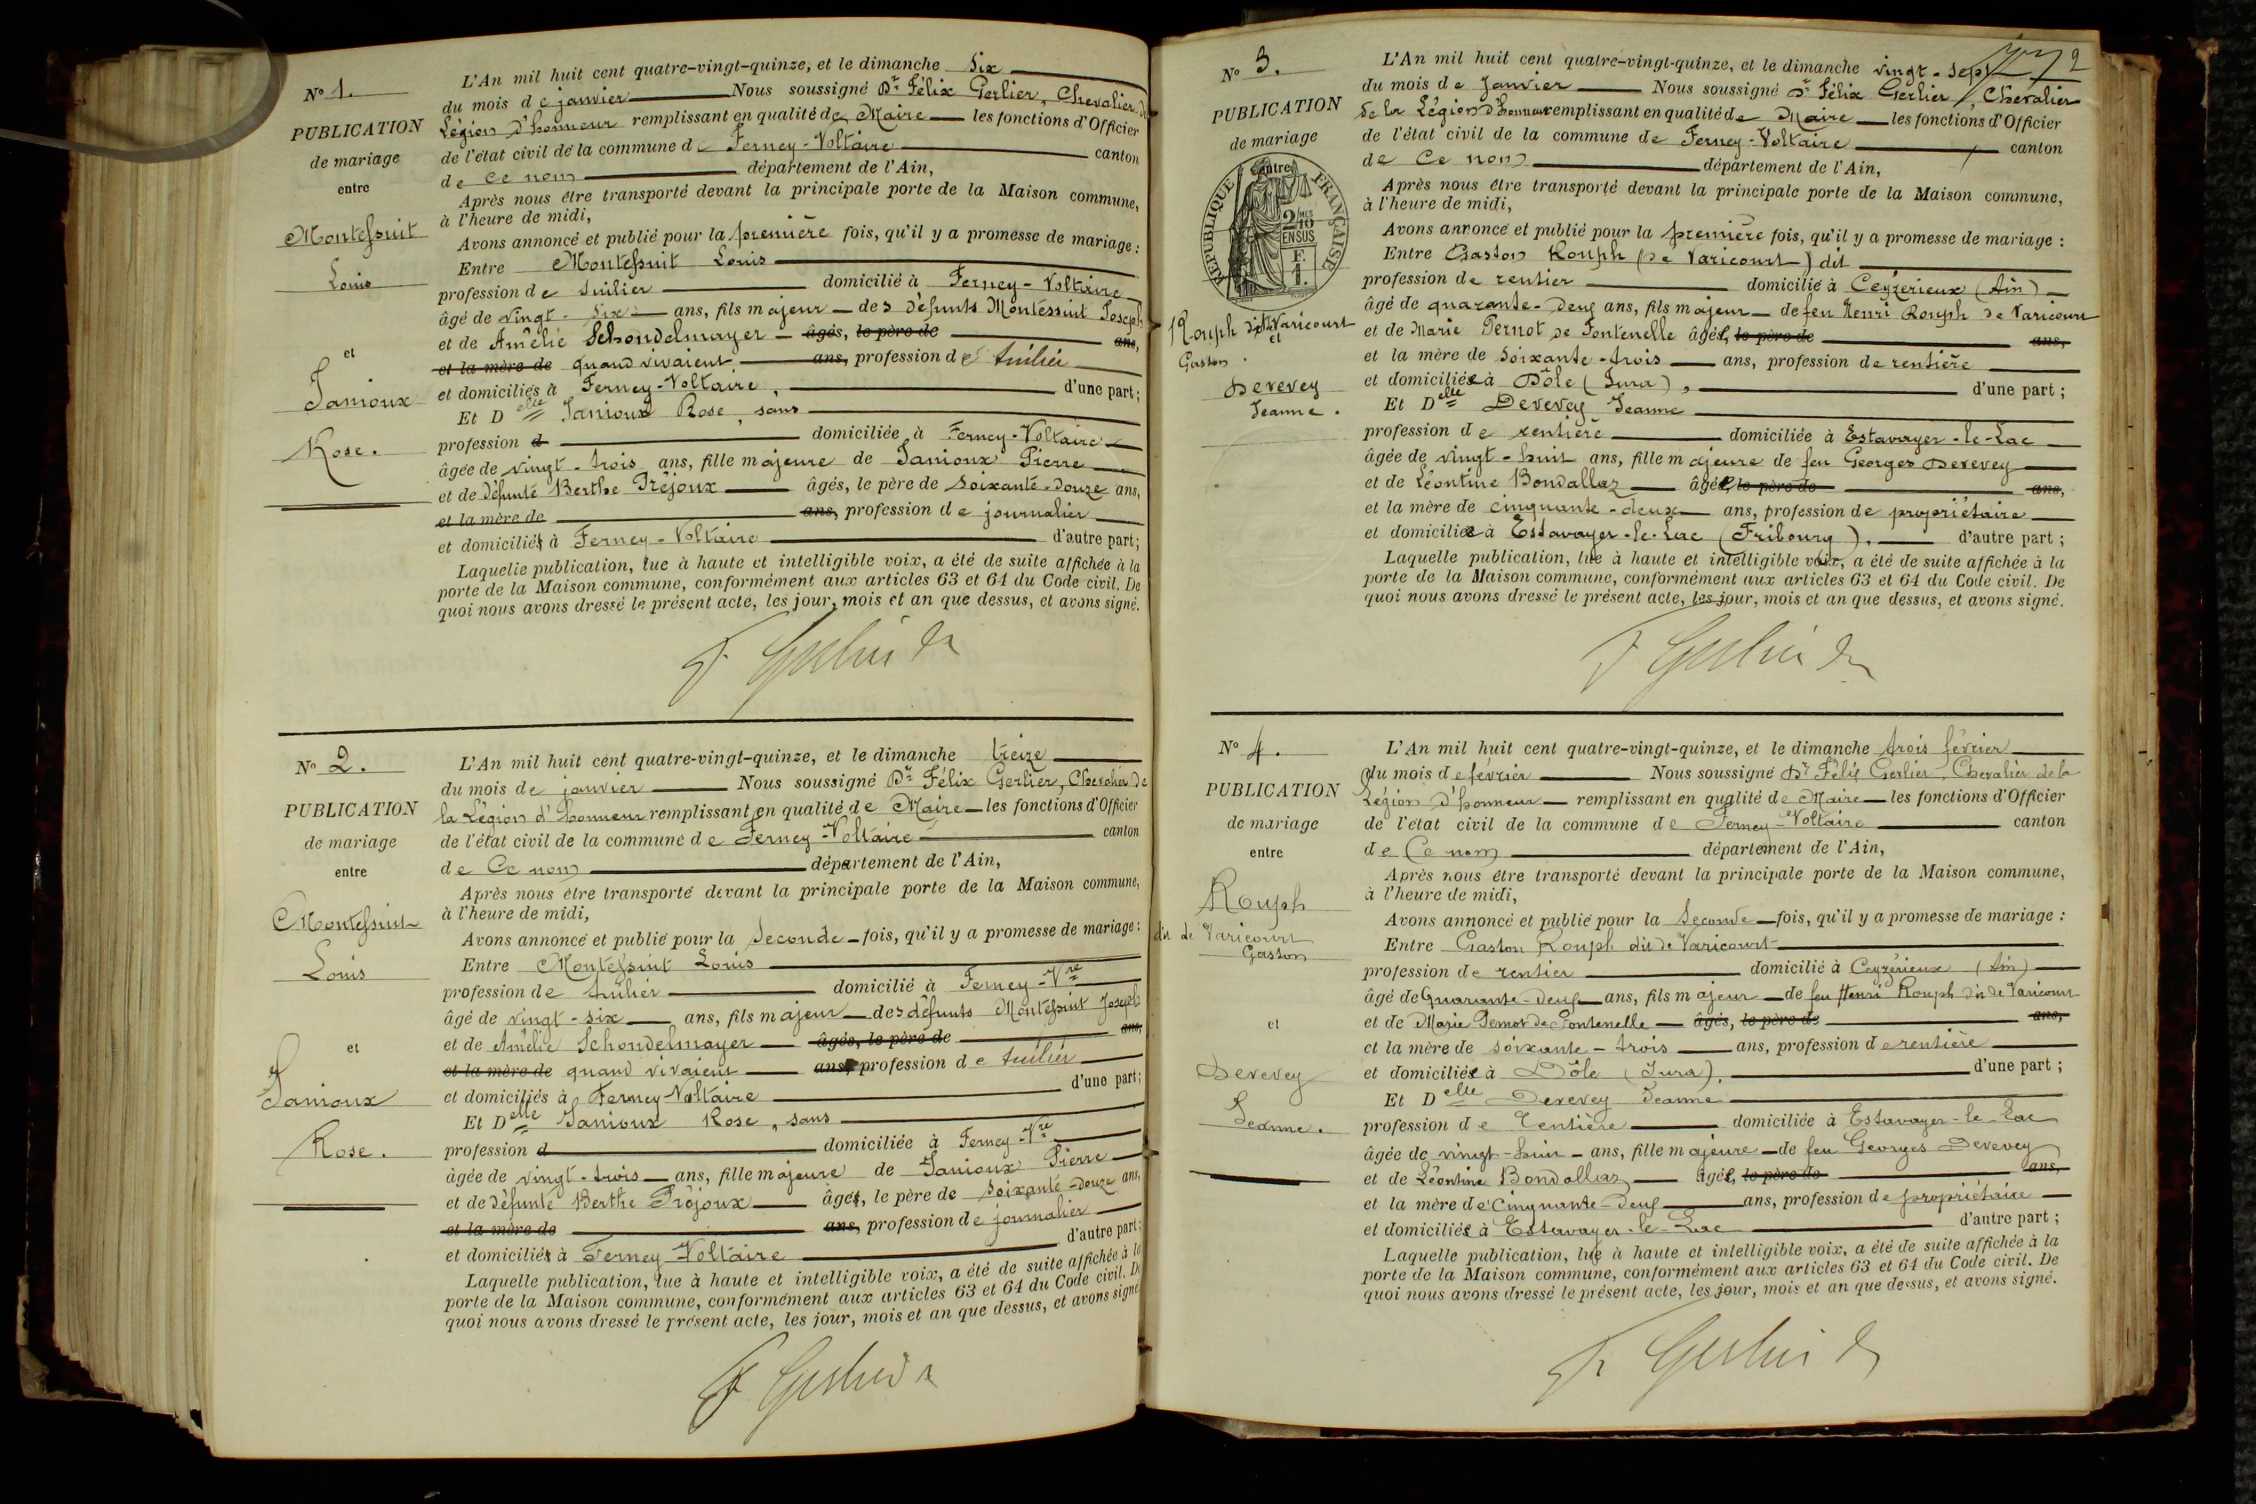 N° 1.
PUBLICATION
de mariage
entre
Montessuit
Louis
et
Janioux
Rose.
L'An mil huit cent quatre-vingt-quinze, et le dimanche six
du mois de janvier Nous soussigné Dr Félix Gerlier, Chevalier de
Légion d'honneur remplissant en qualité de Maire les fonctions d'Officier
de l'état civil de la commune de Ferney-Voltaire canton
de Ce nom département de l'Ain,
Après nous être transporté devant la principale porte de la Maison commune,
à l'heure de midi,
Avons annoncé et publié pour la première fois, qu'il y a promesse de mariage :
Entre Montessuit Louis
profession de tuilier domicilié à Ferney-Voltaire
âgé de vingt-six ans, fils majeur des défunts Montessuit Joseph
et de Amélie Schondelmayer âgés, le père de ans,
et la mère de quand vivaient ans, profession de tuilier
et domiciliés à Ferney-Voltaire, d'une part;
Et Delle Janioux Rose, sans
profession d domiciliée à Ferney-Voltaire
âgée de vingt-trois ans, fille majeure de Janioux Pierre
et de défunte Berthe Préjoux âgés, le père de soixante-douze ans,
et la mère de ans, profession de journalier
et domiciliés à Ferney-Voltaire d'autre part;
Laquelle publication, lue à haute et intelligible voix, a été de suite affichée à la
porte de la Maison commune, conformément aux articles 63 et 64 du Code civil. De
quoi nous avons dressé le présent acte, les jour, mois et an que dessus, et avons signé.
F. Gerlier Dr
N° 2.
PUBLICATION
de mariage
entre
Montessuit
Louis
et
Janioux
Rose.
L'An mil huit cent quatre-vingt-quinze, et le dimanche treize
du mois de janvier Nous soussigné Dr Félix Gerlier, Chevalier de
la Légion d'honneur remplissant en qualité de Maire les fonctions d'Officier
de l'état civil de la commune de Ferney-Voltaire canton
de Ce nom département de l'Ain,
Après nous être transporté devant la principale porte de la Maison commune,
à l'heure de midi,
Avons annoncé et publié pour la seconde fois, qu'il y a promesse de mariage :
Entre Montessuit Louis
profession de tuilier domicilié à Ferney-Vre
âgé de vingt-six ans, fils majeur des défunts Montessuit Joseph
et de Amélie Schondelmayer âgés, le père de ans,
et la mère de quand vivaient ans, profession de tuilier
et domiciliés à Ferney-Voltaire d'une part;
Et Delle Janioux Rose, sans
profession d domiciliée à Ferney-Vre
âgée de vingt-trois ans, fille majeure de Janioux Pierre
et de défunte Berthe Préjoux âgés, le père de soixante-douze ans,
et la mère de ans, profession de journalier
et domiciliés à Ferney-Voltaire d'autre part;
Laquelle publication, lue à haute et intelligible voix, a été de suite affichée à la
porte de la Maison commune, conformément aux articles 63 et 64 du Code civil. De
quoi nous avons dressé le présent acte, les jour, mois et an que dessus, et avons signé
F. Gerlier Dr
2
N° 3.
PUBLICATION
de mariage
entre
REPUBLIQUE FRANÇAISE
2/10MES
EN SUS
F.
1.
Rouph dit de Varicourt
et
Gaston
Derevey
Jeanne.
L'An mil huit cent quatre-vingt-quinze, et le dimanche vingt-sept
du mois de Janvier Nous soussigné Dr Félix Gerlier, Chevalier
de la Légion d'honneur remplissant en qualité de Maire les fonctions d'Officier
de l'état civil de la commune de Ferney-Voltaire canton
de Ce nom département de l'Ain,
Après nous être transporté devant la principale porte de la Maison commune,
à l'heure de midi,
Avons annoncé et publié pour la première fois, qu'il y a promesse de mariage :
Entre Gaston Rouph (de Varicourt) dit
profession de rentier domicilié à Ceyzérieux (Ain)
âgé de quarante-deux ans, fils majeur de feu Henri Rouph de Varicourt
et de Marie Pernot de Fontenelle âgée, le père de ans,
et la mère de soixante-trois ans, profession de rentière
et domiciliée à Dôle (Jura), d'une part ;
Et Delle Derevey Jeanne
profession de rentière domiciliée à Estavayer-le-Lac
âgée de vingt-huit ans, fille majeure de feu Georges Derevey
et de Léontine Bondallaz âgée, le père de ans,
et la mère de cinquante-deux ans, profession de propriétaire
et domiciliée à Estavayer-le-Lac (Fribourg), d'autre part ;
Laquelle publication, lue à haute et intelligible voix, a été de suite affichée à la
porte de la Maison commune, conformément aux articles 63 et 64 du Code civil. De
quoi nous avons dressé le présent acte, les jour, mois et an que dessus, et avons signé.
F. Gerlier Dr
N° 4.
PUBLICATION
de mariage
entre
Rouph
dit de Varicourt
Gaston
et
Derevey
Jeanne.
L'An mil huit cent quatre-vingt-quinze, et le dimanche trois février
du mois de février Nous soussigné Dr Félix Gerlier, Chevalier de la
Légion d'honneur remplissant en qualité de Maire les fonctions d'Officier
de l'état civil de la commune de Ferney-Voltaire canton
de Ce nom département de l'Ain,
Après nous être transporté devant la principale porte de la Maison commune,
à l'heure de midi,
Avons annoncé et publié pour la seconde fois, qu'il y a promesse de mariage :
Entre Gaston Rouph dit de Varicourt
profession de rentier domicilié à Ceyzérieux (Ain)
âgé de Quarante-deux ans, fils majeur de feu Henri Rouph dit de Varicourt
et de Marie Pernot de Fontenelle âgés, le père de ans,
et la mère de soixante-trois ans, profession de rentière
et domiciliée à Dôle (Jura), d'une part ;
Et Delle Derevey Jeanne
profession de rentière domiciliée à Estavayer-le-Lac
âgée de vingt-huit ans, fille majeure de feu Georges Derevey
et de Léontine Bondallaz âgée, le père de ans,
et la mère de Cinquante-deux ans, profession de propriétaire
et domiciliée à Estavayer-le-Lac d'autre part ;
Laquelle publication, lue à haute et intelligible voix, a été de suite affichée à la
porte de la Maison commune, conformément aux articles 63 et 64 du Code civil. De
quoi nous avons dressé le présent acte, les jour, mois et an que dessus, et avons signé.
F. Gerlier Dr